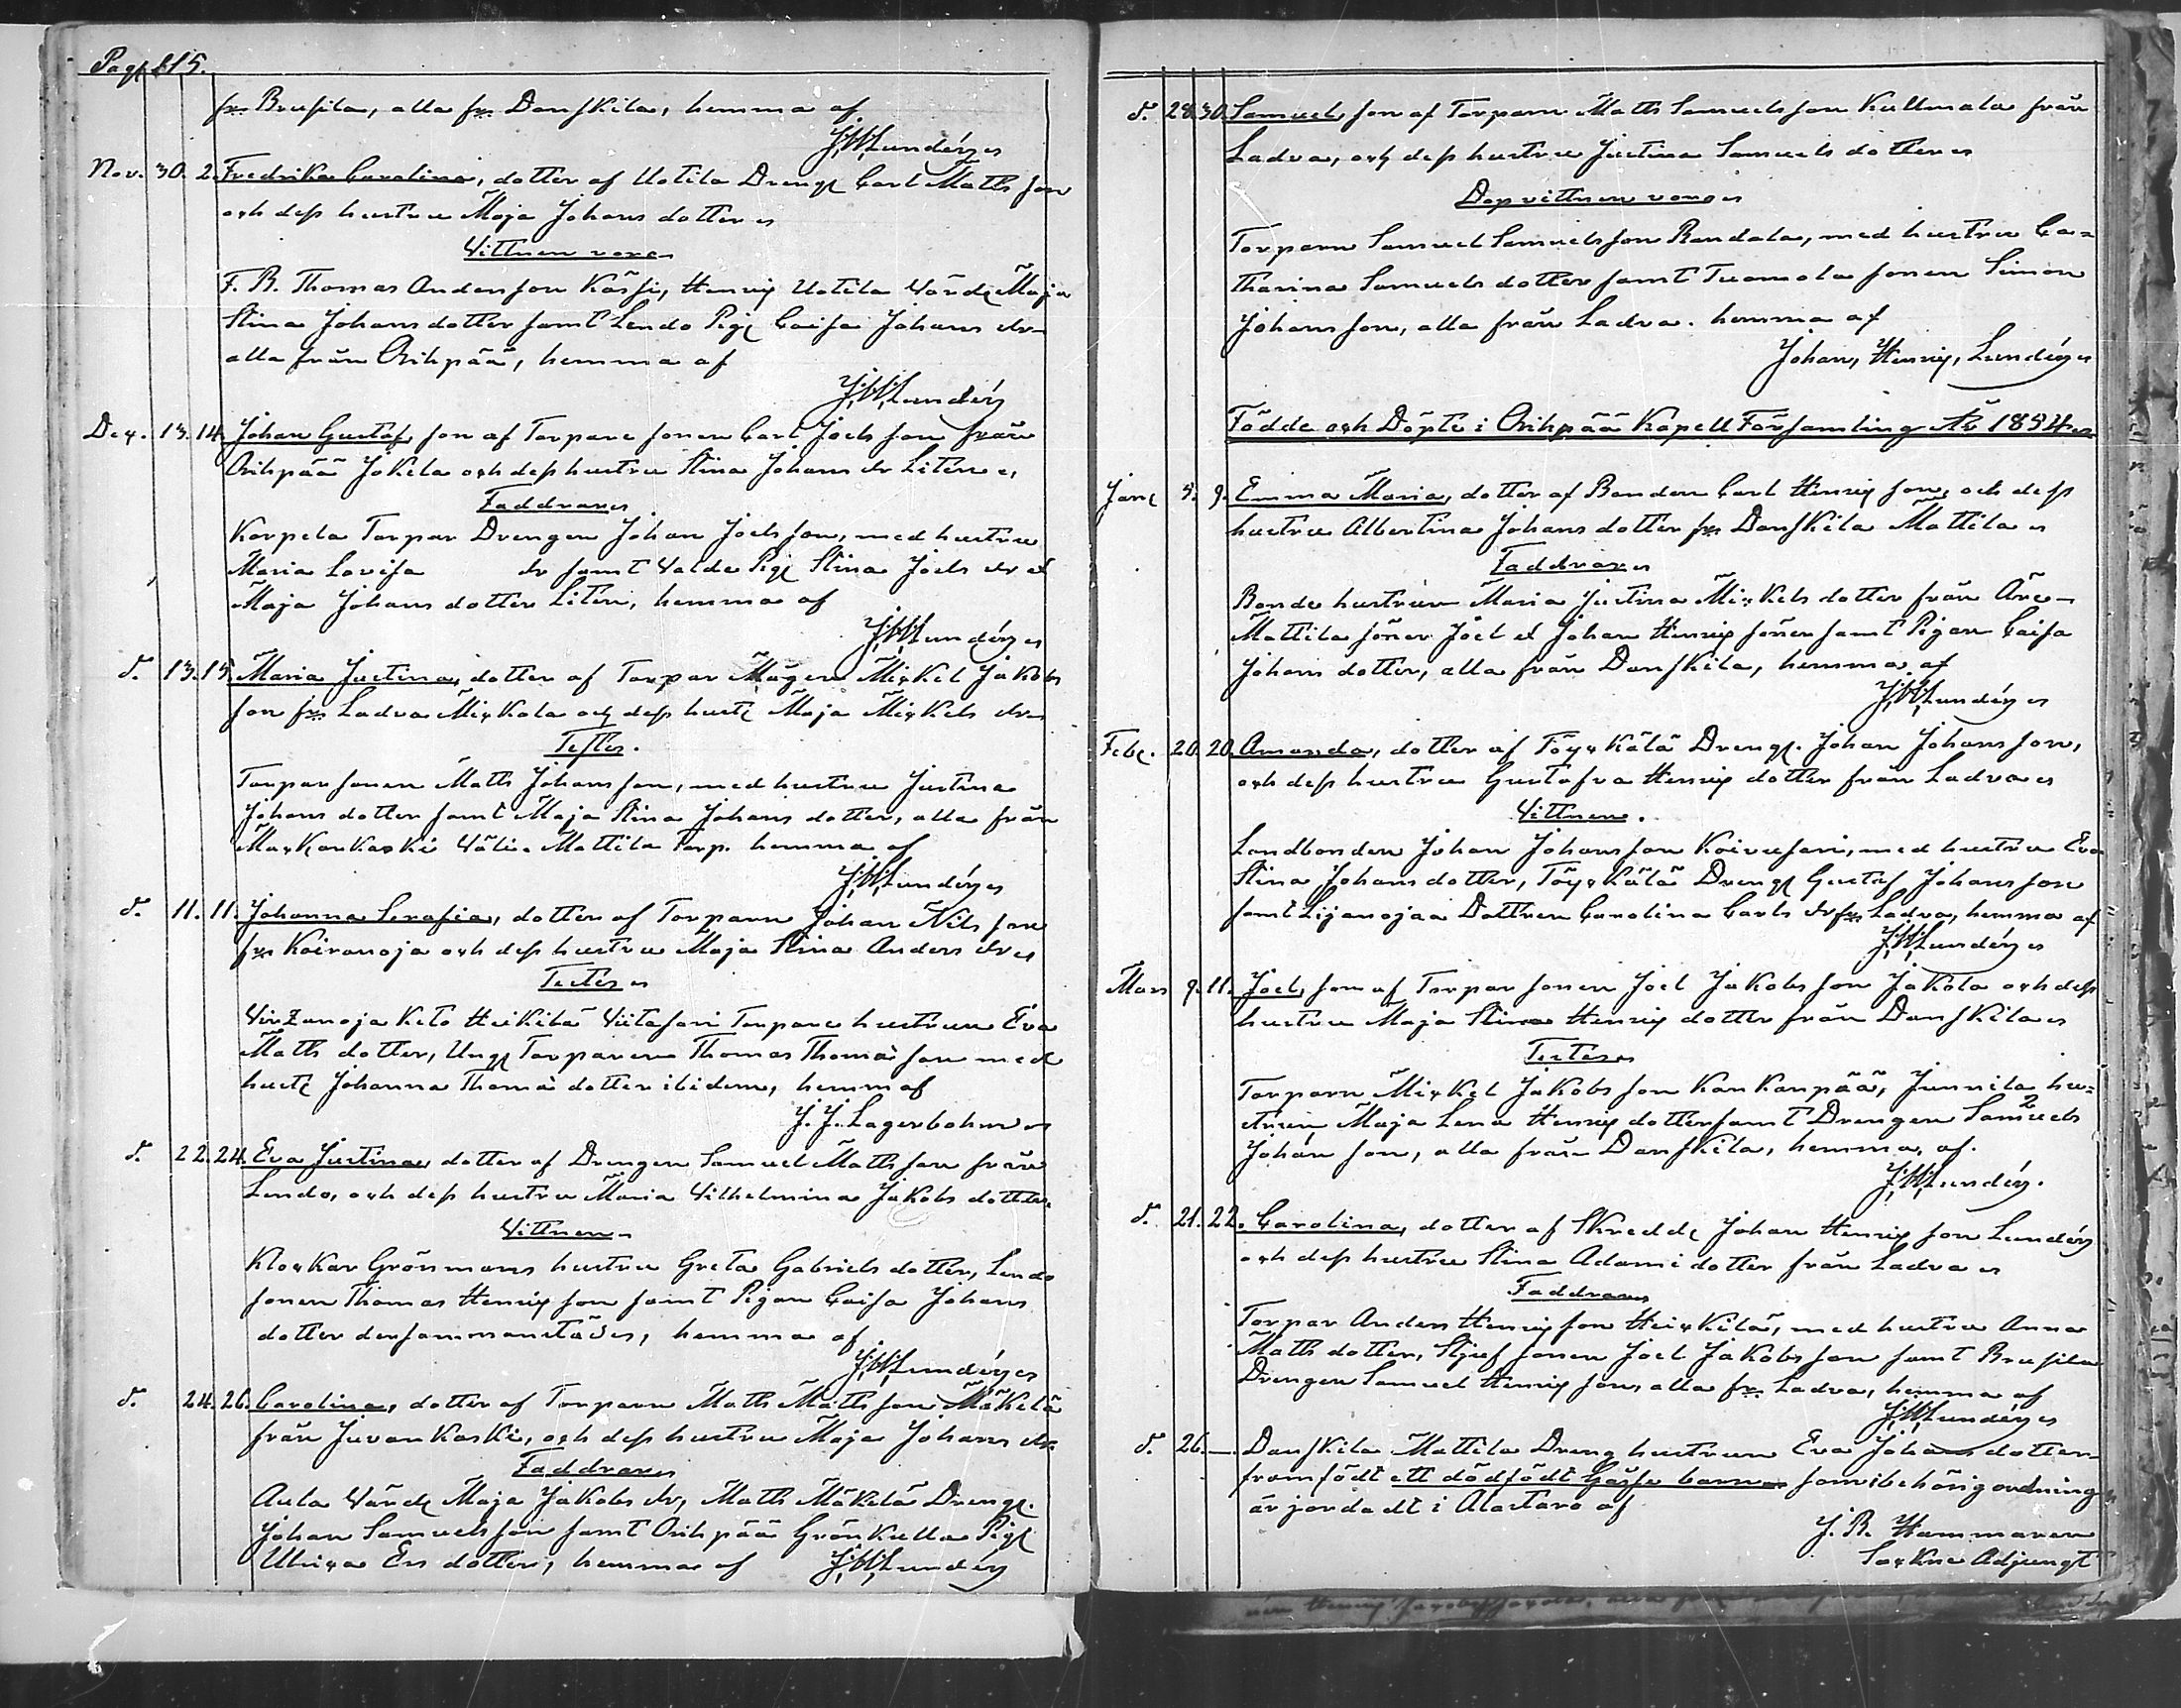 Pag. 115.
fr. Brusila, alla fr. Danskila, hemma af
J. H. Lundén
Nov. 30. 2. Fredrika Carolina, dotter af Uotila Dreng Carl Maths son
och dess hustru Maja Johans dotter
Vittnen voro
F. B. Thomas Andersson Kässi, Henric Uotila Värd Maja
Stina Johans dotter samt Lendo Pig Caisa Johans dr
alla från Orihpää, hemma af
J. H. Lundén
Dec. 13. 14. Johan Gustaf, son af Torpare sonen Carl Joels son från
Orihpää Jokela och dess hustru Stina Johans dr Litén
Faddrar
Korpela Torpar Drengen Johan Joels son, med hustru
Maria Lovisa dr samt Valde Pig Stina Joels dr et
Maja Johans dotter Litén, hemma af
J. H. Lundén
d. 13. 15. Maria Justina, dotter af Torpar Mågen Mickel Jakobs
son fr. Ladva Mickola och dess hust Maja Mickels dr
Testes.
Torpar sonen Math Johans son, med hustru Justina
Johans dotter samt Maja Stina Johans dotter, alla från
Mackonkaski Väli-Mattila Torp. hemma af
J. H. Lundén
d. 11. 11. Johanna Serafia, dotter af Torparn Johan Nils son
fr. Koiranoja och dess hustru Maja Stina Anders dr
Testes
Virzanoja Keto Heikilä Viitasari Torpare hustrun Eva
Maths dotter, Ung Torparen Thomas Thomæ son med
hust Johanna Thomæ dotter ibidem, hemm af
J. J. Lagerbohm
d. 22. 24. Eva Justina, dotter af Drengen Samuel Maths son från
Lendo, och dess hustru Maria Vilhelmina Jakobs dotter.
Vittnen
Klockar Grönmans hustru Greta Gabriels dotter, Lendo
sonen Thomas Henric son samt Pigan Caisa Johans
dotter dersammanstädes, hemma af
J. H. Lundén
d. 24. 26. Carolina, dotter af Torparn Maths Maths son Mäkelä
från Juvankoski, och dess hustru Maja Johans dr
Faddrar
Aula Värd Maja Jakobs dr, Maths Mäkelä Dreng.
Johan Samuels son samt Orihpää Grönkulla Pig
Ulrica Ers dotter, hemma af J. H. Lundén
d. 28. 30. Samuel, son af Torparn Maths Samuels son Kullmala från
Ladva, och dess hustru Justina Samuels dotter
Dopvittnen voro
Torparn Samuel Samuels son Randala, med hustru Ca=
tharina Samuels dotter samt Tuomola sonen Simon
Johans son, alla från Ladva. hemma af
Johan, Henric, Lundén
Födde och Döpte i Orihpää Kapell Församling År 1854
Jan 5. 9. Emma Maria, dotter af Bonden Carl Henric son, och dess
hustru Albertina Johans dotter fr. Danskila Mattila
Faddrar
Bonde hustrun Maria Justina Mickels dotter från Äre-
Mattila söner Joel et Johan Henrics söner samt Pigan Caisa
Johans dotter, alla från Danskila, hemma af
J. H. Lundén
Feb. 20. 20. Amanda, dotter af Töyckälä Dreng. Johan Johans son,
och dess hustru Gustafva Henrics dotter från Ladva
Vittnen.
Landbonden Johan Johans son Koivusari, med hustru Eva
Stina Johans dotter, Töyckälä Dreng Gustaf Johans son
samt Lijanojan Dottren Carolina Carls dr fr. Ladva, hemma af
J. H. Lundén
Mars 9. 11. Joel, son af Torpar sonen Joel Jakobs son Jakola och dess
hustru Maja Stina Henrics dotter från Danskila
Testes
Torparn Mickel Jakobs son Kankanpää, Junnila hu=
strun Maja Lena Henrics dotter samt Drengen Samuels
Johan son, alla från Danskila, hemma, af.
J. H. Lundén.
d. 21. 22. Carolina, dotter af Skredd Johan Henric son Lundén
och dess hustru Stina Adami dotter från Ladva
Faddrar
Torpar Anders Henric son Heickilä, med hustru Anna
Maths dotter, Stjuf sonen Joel Jakobs son samt Brusila
Drengen Samuel Henric sons alla fr. Ladva, hemma af
J. H. Lundén
d. 26. —. Danskila Mattila Dreng hustrun Eva Johans dotter
framfödt ett dödfödt Gosse barn som i behörig ordning
är jordadt i Alastaro af
J. R. Hammaren
Sockne Adjungt